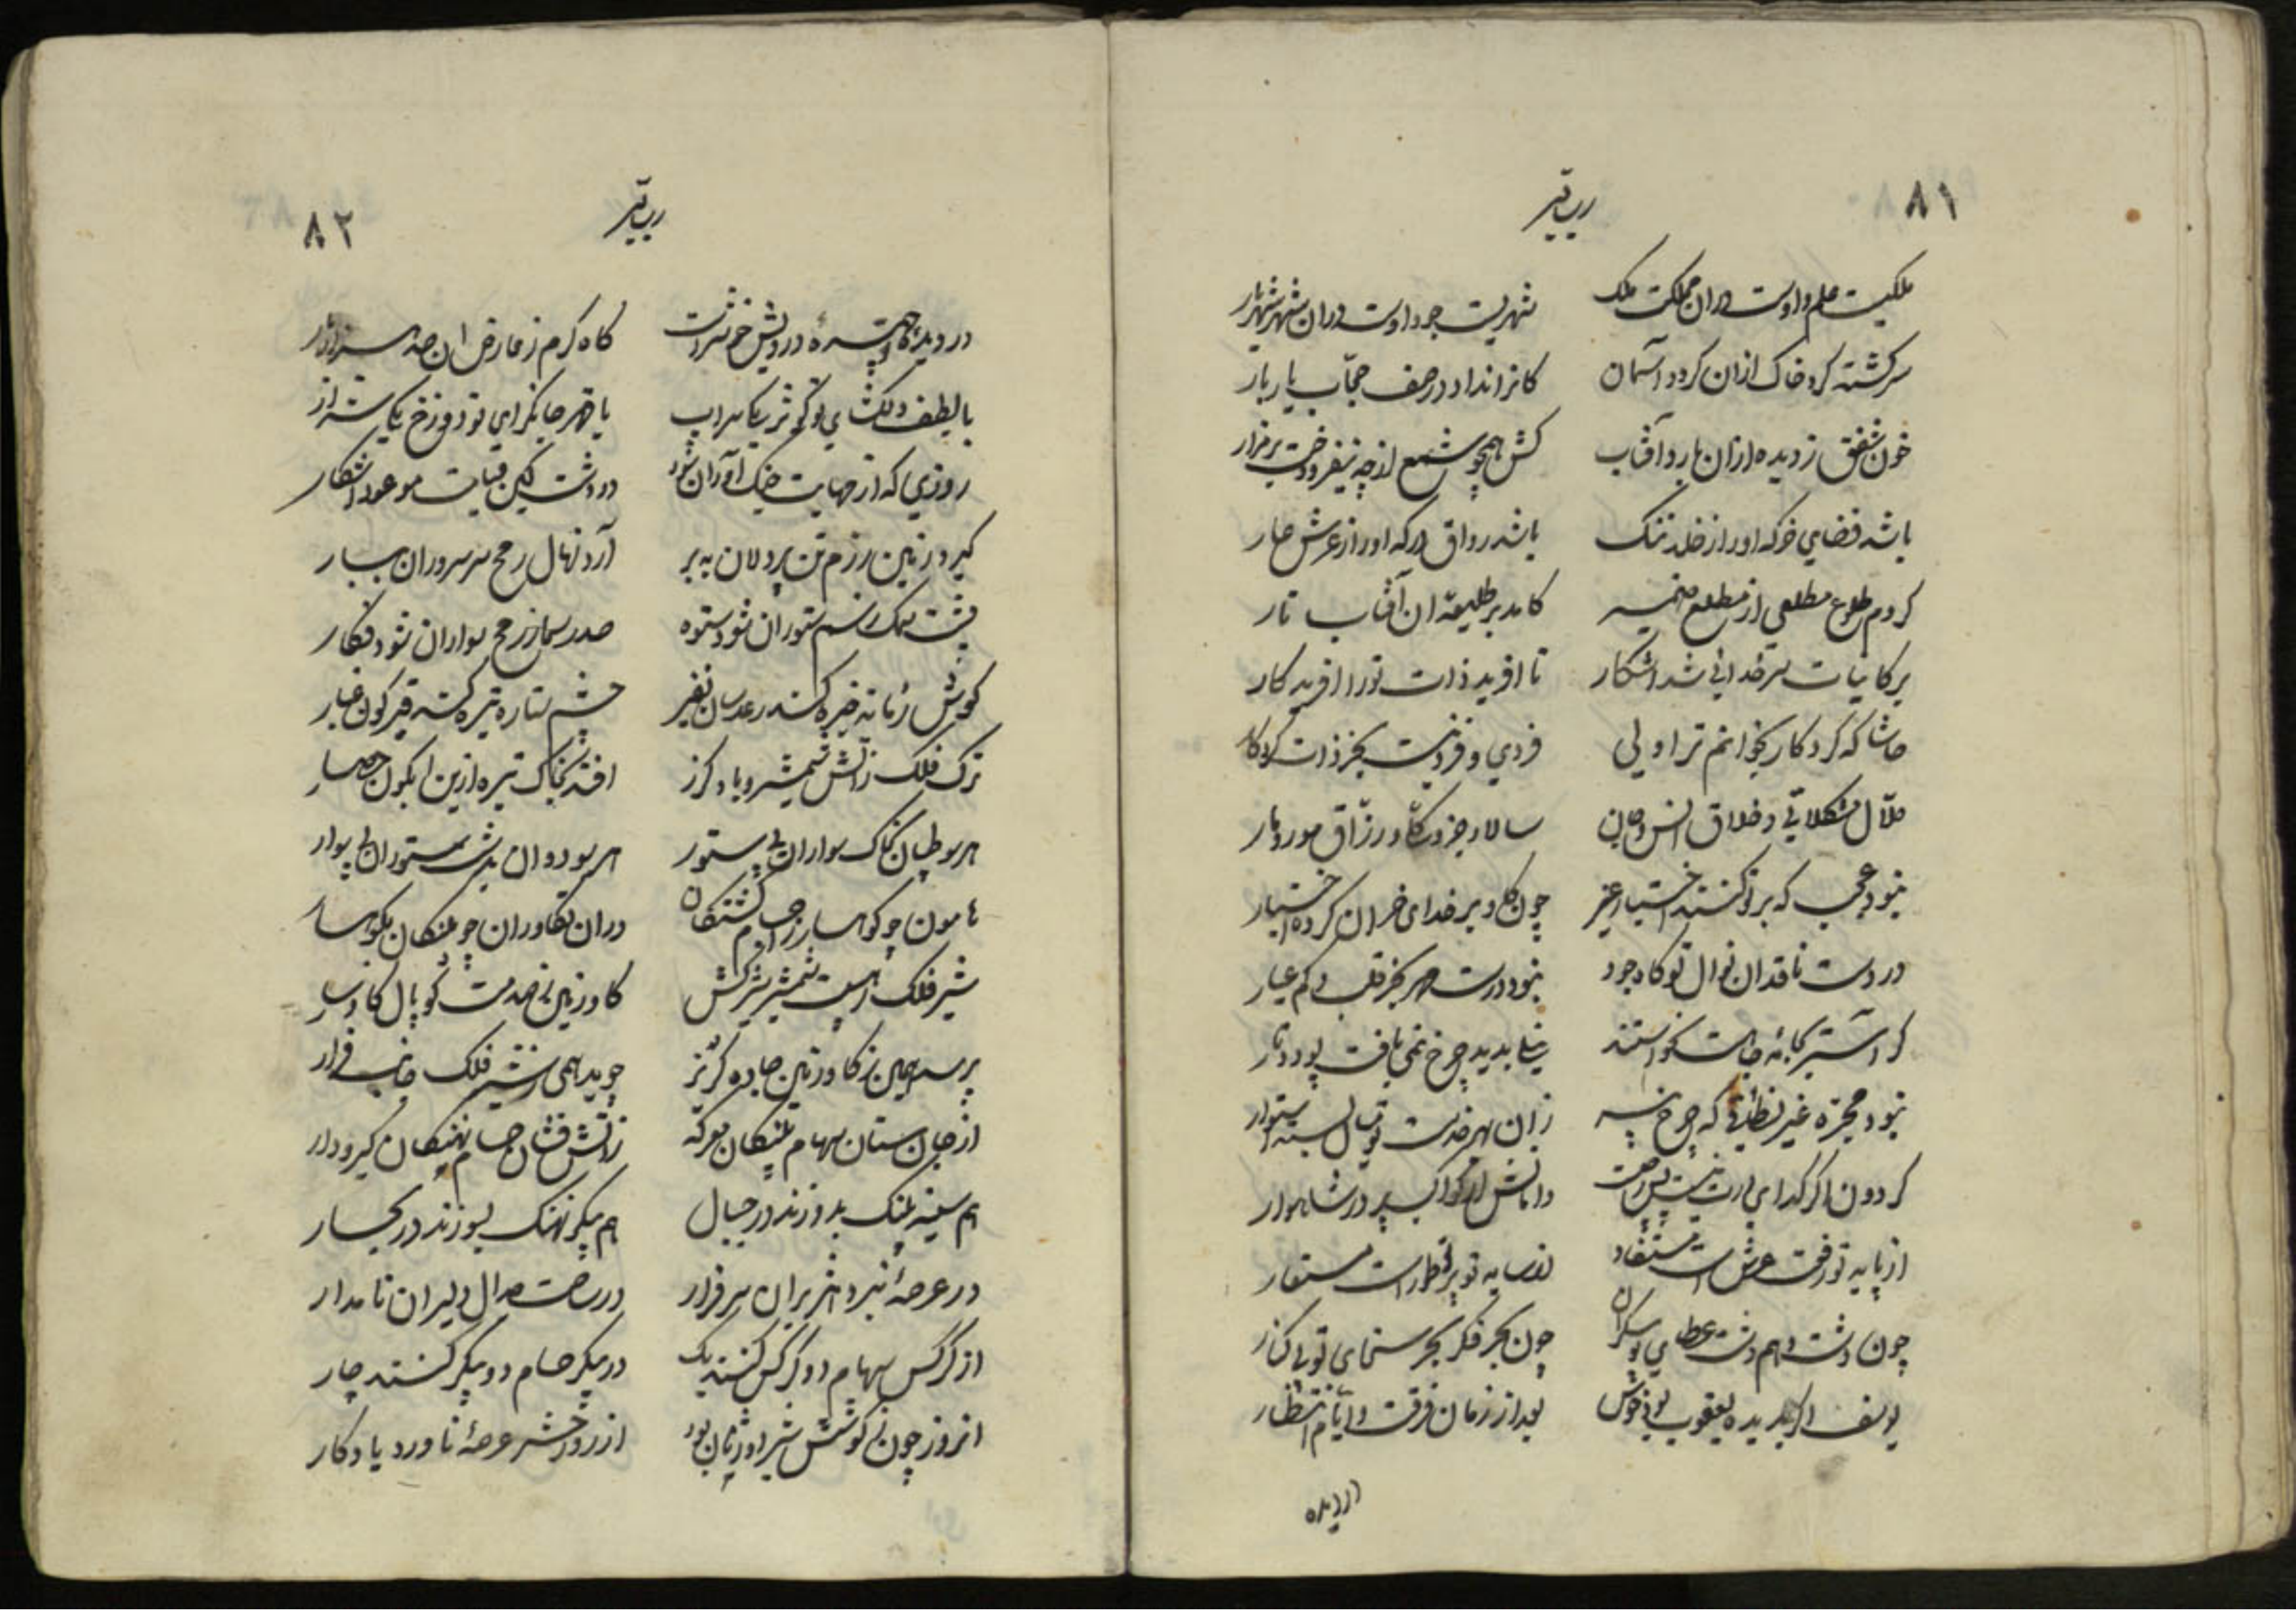 ۸۱
ملکیست علم و اوست در آن مملکت ملک شهریست جود و اوست در آن شهر شهریار
سرگشته کرد خاک از آن گردد آسمان کانرا نداد در صف حجاب یار بار
خون شفق ز دیده از آن بارد آفتاب کش همچو شمع از چه نیفروخت بر مزار
باشد فضای خرگه او را ز خلد ننگ باشد رواق درگه او را ز عرش عار
کردم طلوع مطلعی از مطلع ضمیر کامد بر طلیعه آن آفتاب تار
بر کاینات سر خدائی شد آشکار تا آفرید ذات تو را آفریدکار
حاشا که کردکار بخوانم ترا ولی فردی و فرد نیست بجز ذات کردکار
حلال مشکلاتی و خلاق انس و جان سالار جزو و کل و رزاق مور و مار
نبود عجب که بر تو کنند اختیار غیر چون گاو بر خدای خران کرده اختیار
در دست ناقدان نوال تو گاه جود نبود درست مهر بجز قلب کم عیار
نبود مجره غیر نطاقی که چرخ پیر زان بهر خدمت تو میان بسته استوار
گردون اگر گدای درت نیست پس ز چیست دامانش از کواکب پر در شاهوار
از پایه تو رفعت عرش است مستفاد از سایه تو پرتو مهر است مستعار
چون دشت وهم دشت عطای تو بیکران چون بحر فکر بحر سخای تو بی کنار
یوسف اگر بدیده یعقوب بود خوش بعد از زمان فرقت و ایام انتظار
در دیده
۸۲
در دیده گاه چهره درویش خوشتر است گاه کرم ز عارض آن صد هزار بار
با لطف دلگشای تو کوثر یکی سراب با قهر جانگزای تو دوزخ یکی شرار
روزی که از مهابت جنگ آوران شود در دشت کین قیامت موعود آشکار
گیرد زمین رزم تن پردلان به بر آرد نهال رمح سر سروران ببار
پشت سمک ز سم ستوران شود ستوه صدر سما ز رمح سواران شود فکار
گوش زمانه خیره کند رعدسان نفیر چشم ستاره تیره کند قیرگون غبار
ترک فلک ز آتش شمشیر و باد گرز افتد بخاک تیره ازین آبگون حصار
هر سو طپان بخاک سواران بی ستور هر سو دوان بدشت ستوران بی سوار
هامون چو کوهسار ز اجسام کشتگان در آن تکاوران چو پلنگان بکوهسار
شیر فلک ز هیبت شمشیر شیرکش گاو زمین ز صدمت کوپال گاوسار
پوید همی ز گاو زمین جاده گریز جوید همی ز شیر فلک جانب فرار
از جان ستان سهام پلنگان معرکه ز آتش فشان حسام نهنگان گیرودار
هم سینه پلنگ بدوزند در جبال هم پیکر نهنگ بسوزند در بحار
در عرصه نبرد هژبران سرفراز در ساحت جدال دلیران نامدار
از کرکس سهام دو کرکس کنند یک در پیکر حسام دو پیکر کنند چار
آنروز چون ز کوشش شیر اوژنان بود از روز حشر عرصه ناورد یادگار